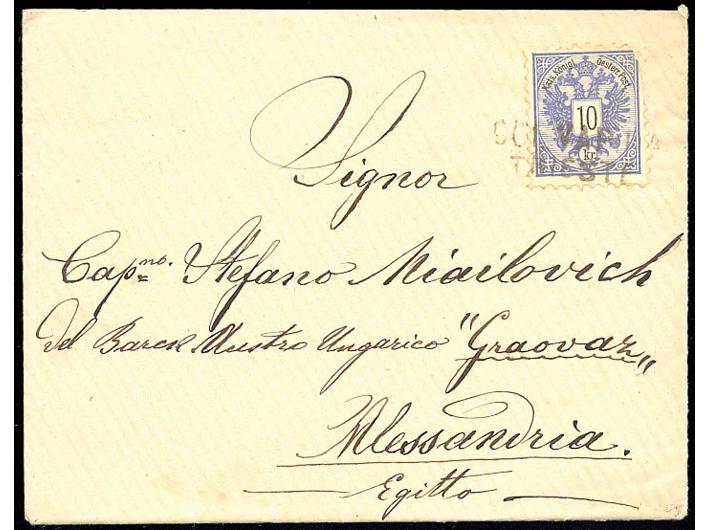 Kais. Königl. Oesterr. Post.
10
kr.
TRIESTE
Signor
Cap.no Stefano Miailovich
del Barck Austro Ungarico "Graovaz"
Alessandria.
Egitto